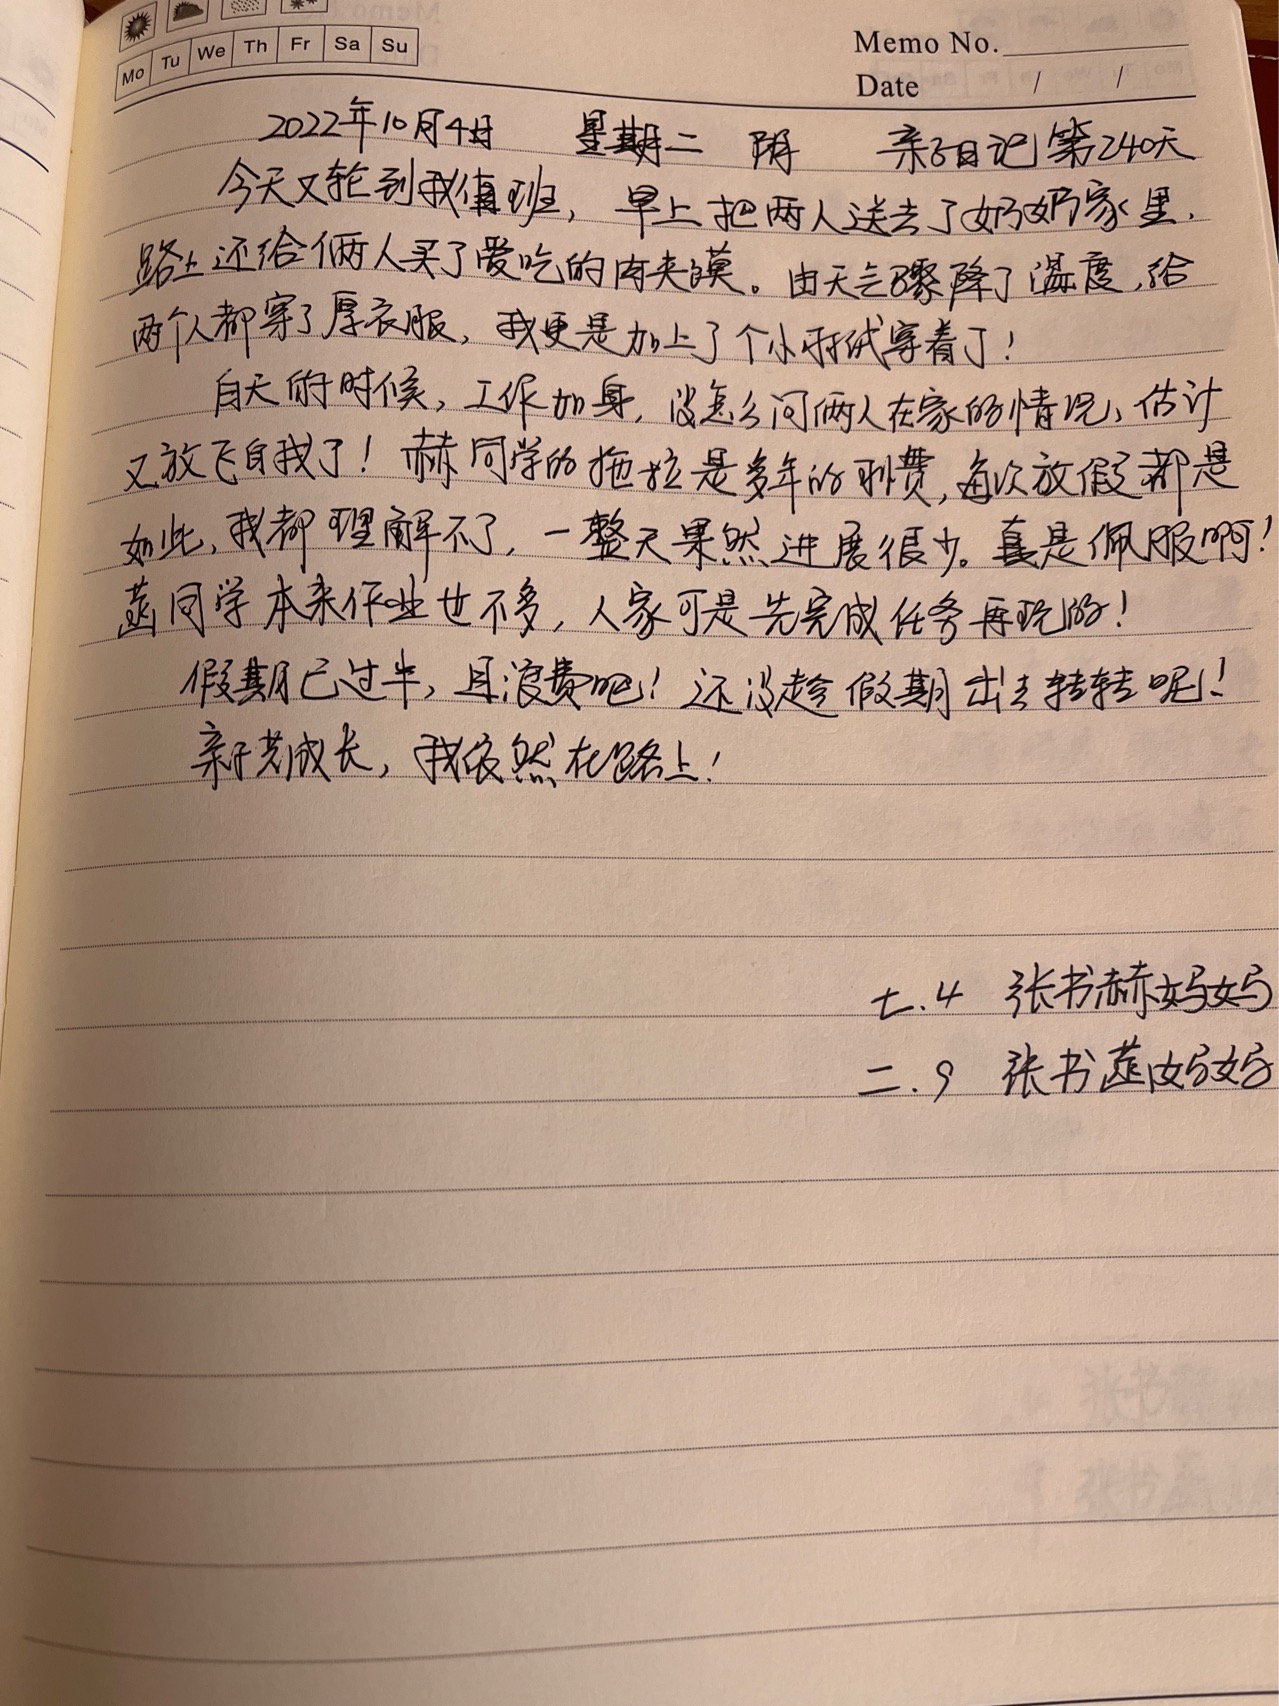 Mo Tu We Th Fr Sa Su
Memo No.
Date / /
2022年10月4日 星期二 阴 亲子日记第240天
今天又轮到我值班，早上把两人送去了奶奶家里，
路上还给俩人买了爱吃的肉夹馍。由天气骤降了温度，给
两个人都穿了厚衣服，我更是加上了个小棉袄穿着了！
白天的时候，工作加身，没怎么问俩人在家的情况，估计
又放飞自我了！赫同学的拖拉是多年的浪费，每次放假都是
如此，我都理解不了，一整天果然进展很少。真是佩服啊！
菡同学本来作业也不多，人家可是先完成任务再玩的！
假期已过半，且浪费吧！还没趁假期出去转转呢！
亲子共成长，我依然在路上！
七.4 张书赫妈妈
二.9 张书菡妈妈